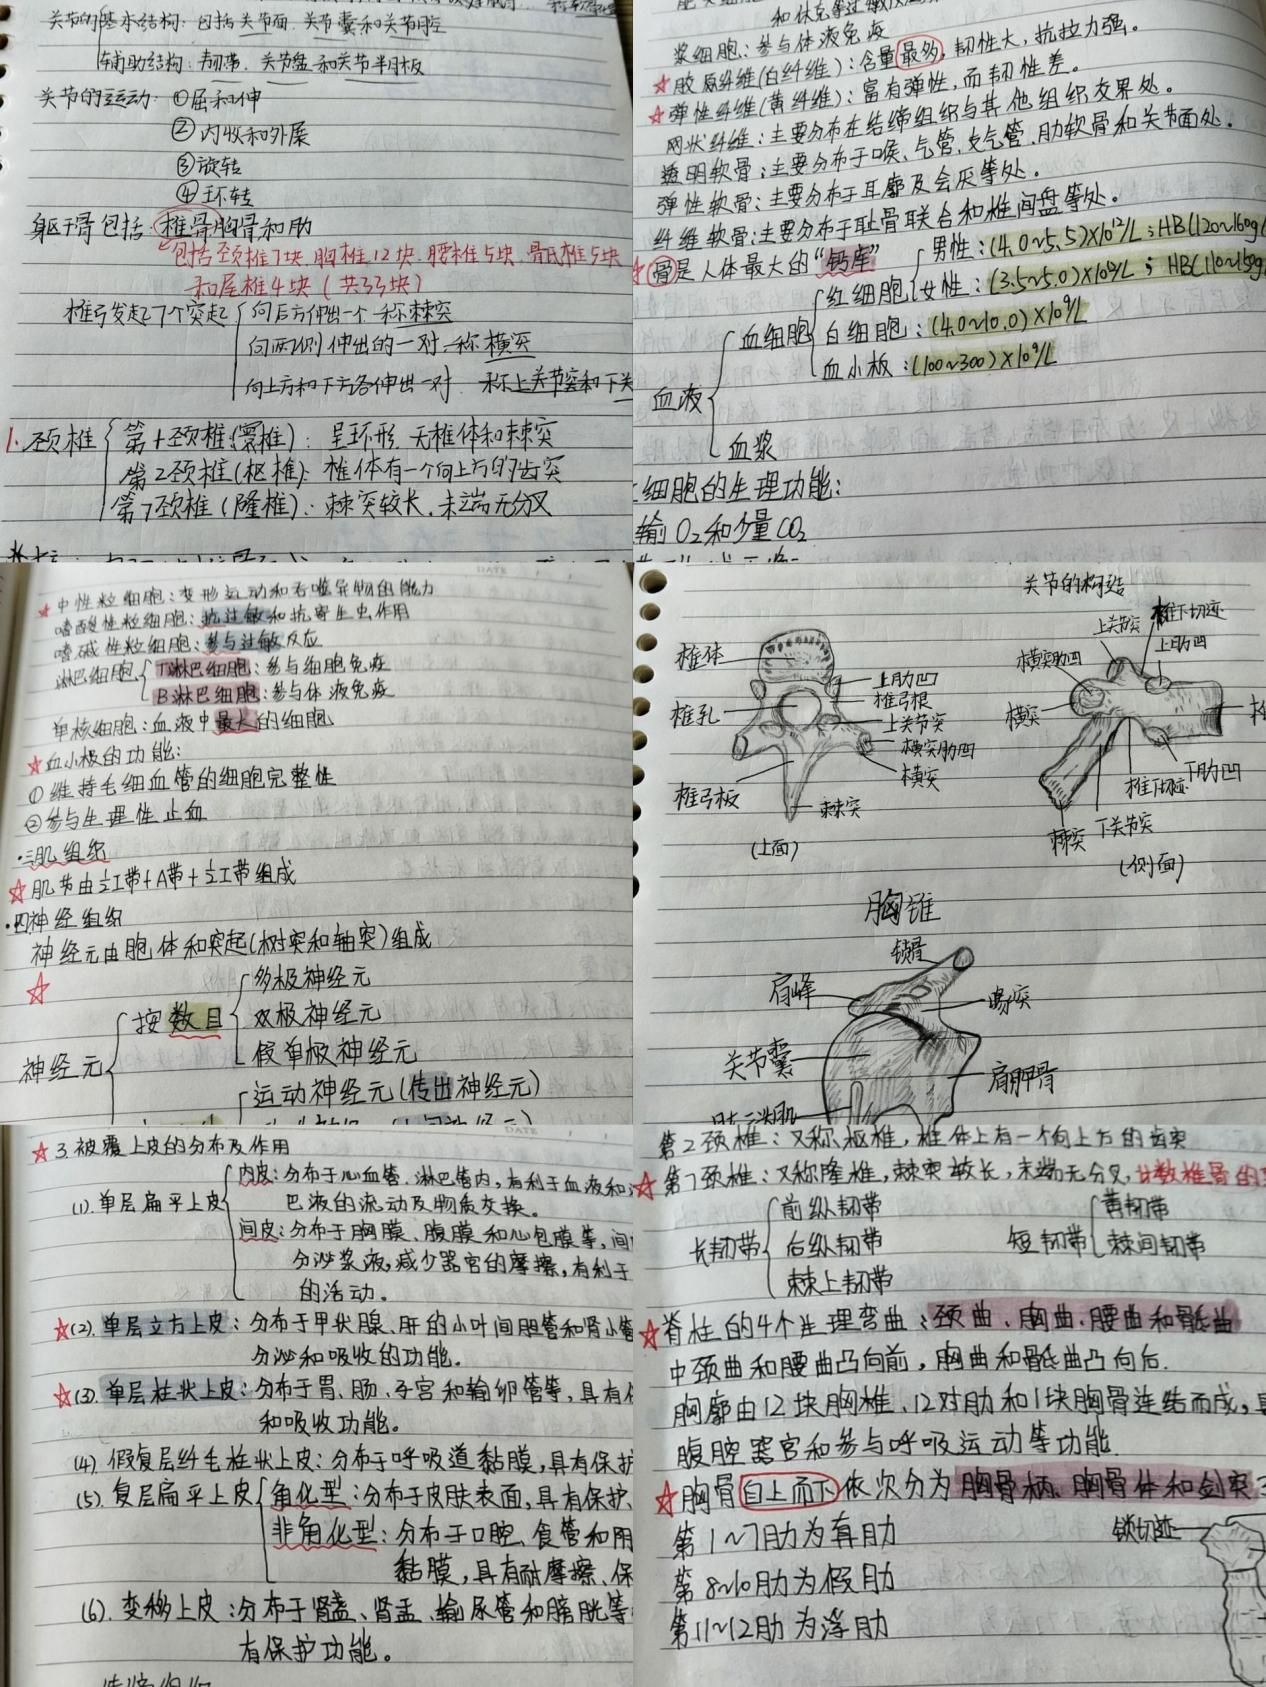 关节的基本结构：包括关节面、关节囊和关节腔
辅助结构：韧带、关节盘和关节半月板
关节的运动：①屈和伸
②内收和外展
③旋转
④环转
躯干骨包括：椎骨胸骨和肋
包括颈椎7块 胸椎12块、腰椎5块、骨氐椎5块
和尾椎4块（共33块）
椎弓发起7个突起 向后方伸出一个 称棘突
向两侧伸出的一对 称横突
向上方和下方各伸出一对 称上关节突和下关
1.颈椎 第1颈椎(寰椎)：呈环形 无椎体和棘突
第2颈椎(枢椎)：椎体有一个向上方的齿突
第7颈椎(隆椎)：棘突较长，末端无分叉
浆细胞：参与体液免疫
☆胶原纤维(白纤维)：含量最多，韧性大，抗拉力强。
☆弹性纤维(黄纤维)：富有弹性，而韧性差。
网状纤维：主要分布在结缔组织与其他组织交界处。
透明软骨：主要分布于喉、气管、支气管、肋软骨和关节面处。
弹性软骨：主要分布于耳廓及会厌等处。
纤维软骨：主要分布于耻骨联合和椎间盘等处。
☆骨是人体最大的“钙库”
男性：(4.0~5.5)×10¹²/L；HB(120~160g/
红细胞 女性：(3.5~5.0)×10¹²/L；HB(110~150g/
血细胞 白细胞：(4.0~10.0)×10⁹/L
血小板：(100~300)×10⁹/L
血液
血浆
细胞的生理功能：
输O₂和少量CO₂
☆中性粒细胞：变形运动和吞噬异物的能力
嗜酸性粒细胞：抗过敏和抗寄生虫作用
嗜碱性粒细胞：参与过敏反应
淋巴细胞 T淋巴细胞：参与细胞免疫
B淋巴细胞：参与体液免疫
单核细胞：血液中最大的细胞
☆血小板的功能：
①维持毛细血管的细胞完整性
②参与生理性止血
·三肌组织
☆肌节由½I带+A带+½I带组成
·四神经组织
神经元由胞体和突起(树突和轴突)组成
☆
多极神经元
按数目 双极神经元
假单极神经元
神经元
运动神经元(传出神经元)
关节的构造
椎体
上肋凹
椎孔
椎弓根
上关节突
横突肋凹
横突
椎弓板
棘突
(上面)
上关节突
椎下切迹
上肋凹
横突肋凹
横突
下肋凹
椎下切迹
下关节突
棘突
(侧面)
胸锥
锁骨
肩峰
喙突
关节囊
肩胛骨
☆3.被覆上皮的分布及作用
(1).单层扁平上皮 内皮：分布于心血管、淋巴管内，有利于血液和
巴液的流动及物质交换。
间皮：分布于胸膜、腹膜和心包膜等，间
分泌浆液，减少器官的摩擦，有利于
的活动。
☆(2).单层立方上皮：分布于甲状腺、肝的小叶间胆管和肾小管
分泌和吸收的功能。
☆(3).单层柱状上皮：分布于胃、肠、子宫和输卵管等，具有
和吸收功能。
(4).假复层纤毛柱状上皮：分布于呼吸道黏膜，具有保护
(5).复层扁平上皮 角化型：分布于皮肤表面，具有保护、
非角化型：分布于口腔、食管和阴
黏膜，具有耐摩擦、保
(6).变移上皮：分布于肾盏、肾盂、输尿管和膀胱等
有保护功能。
第2颈椎：又称、枢椎，椎体上有一个向上方的齿突
☆第7颈椎：又称隆椎，棘突较长，末端无分叉，计数椎骨的
前纵韧带
长韧带 后纵韧带
棘上韧带
黄韧带
短韧带 棘间韧带
☆脊柱的4个生理弯曲：颈曲、胸曲、腰曲和骶曲
中颈曲和腰曲凸向前，胸曲和骶曲凸向后.
胸廓由12块胸椎、12对肋和1块胸骨连结而成，具
腹腔器官和参与呼吸运动等功能.
☆胸骨自上而下依次分为胸骨柄、胸骨体和剑突
第1~7肋为真肋
第8~10肋为假肋
第11~12肋为浮肋
锁切迹